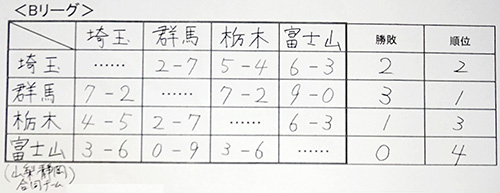 <Bリーグ>
埼玉 群馬 栃木 富士山 勝敗 順位
埼玉 …… 2-7 5-4 6-3 2 2
群馬 7-2 …… 7-2 9-0 3 1
栃木 4-5 2-7 …… 6-3 1 3
富士山 3-6 0-9 3-6 …… 0 4
(山梨静岡
合同チーム)